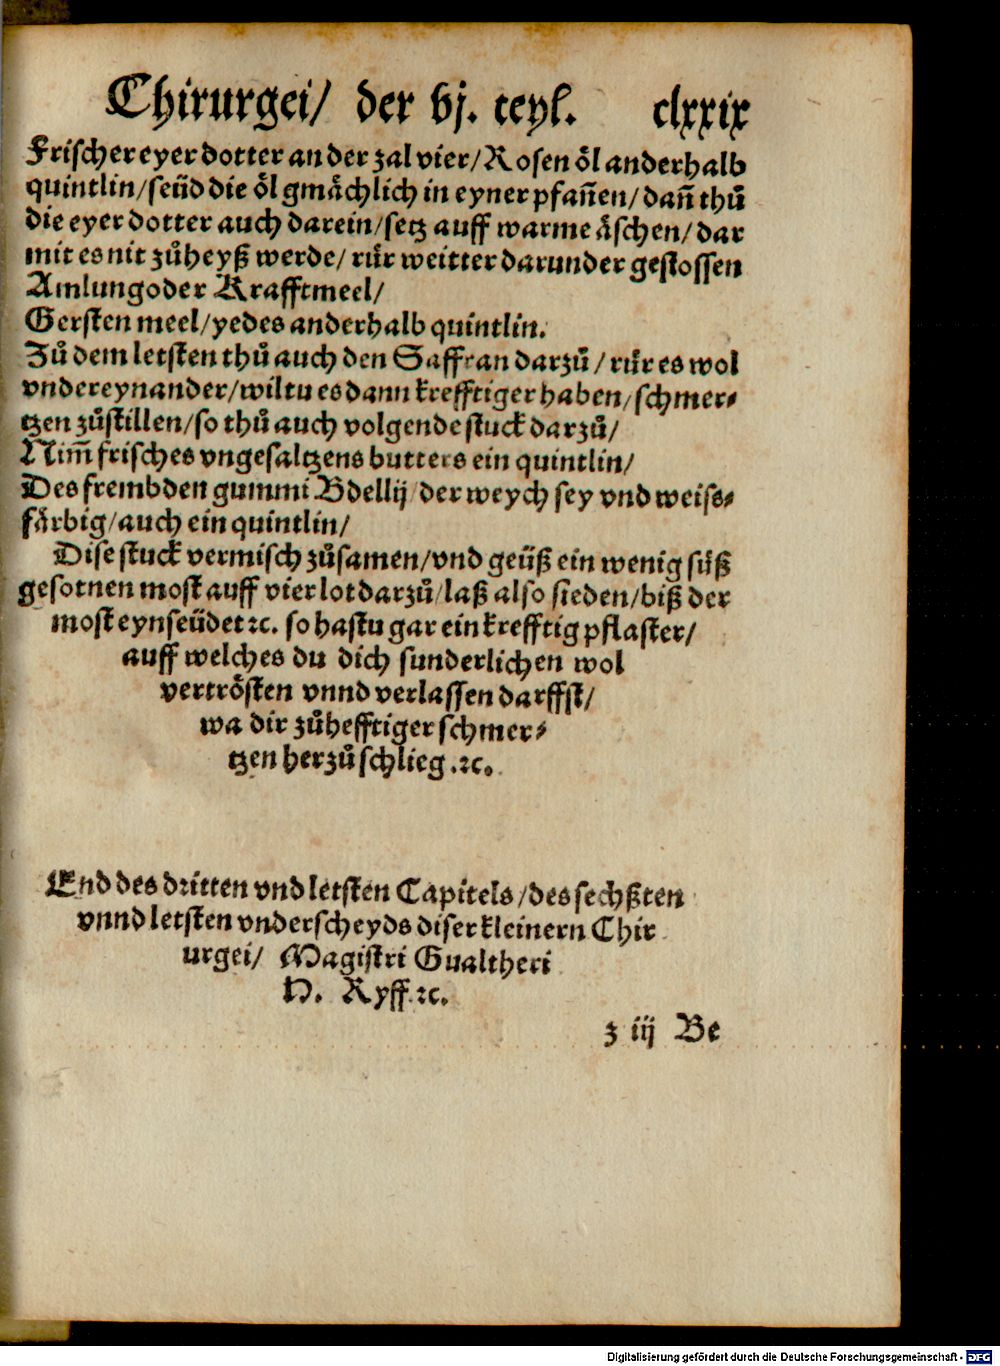 Chirurgei/ der vj. teyl. clxxix
Frischer eyer dotter an der zal vier/Rosen oͤl anderhalb
quintlin/seüd die oͤl gmaͤchlich in eyner pfañen/dañ thuͦ
die eyer dotter auch darein/setz auff warme aͤschen/dar
mit es nit zuͦheyß werde/ ruͤr weitter darunder gestossen
Amlung oder Krafftmeel/
Gersten meel/yedes anderhalb quintlin.
Zuͦ dem letsten thuͦ auch den Saffran darzuͦ/ruͤr es wol
vndereynander/wiltu es dann krefftiger haben/schmer⸗
tzen zuͦstillen/so thuͦ auch volgende stuck darzuͦ/
Nim̃ frisches vngesaltzens butters ein quintlin/
Des frembden gummi Bdellij/der weych sey vnd weiss⸗
faͤrbig/auch ein quintlin/
Dise stuck vermisch zuͦsamen/vnd geüß ein wenig suͤß
gesotnen most auff vier lot darzuͦ/laß also sieden/biß der
most eynseüdet ꝛc. so hastu gar ein krefftig pflaster/
auff welches du dich sunderlichen wol
vertroͤsten vnnd verlassen darffst/
wa dir zuͦhefftiger schmer⸗
tzen herzuͦ schlieg .ꝛc.
End des dritten vnd letsten Capitels/des sechßten
vnnd letsten vnderscheyds diser kleinern Chir
urgei/ Magistri Gualtheri
H. Ryff.ꝛc.
z iij Be
Digitalisierung gefördert durch die Deutsche Forschungsgemeinschaft - DFG